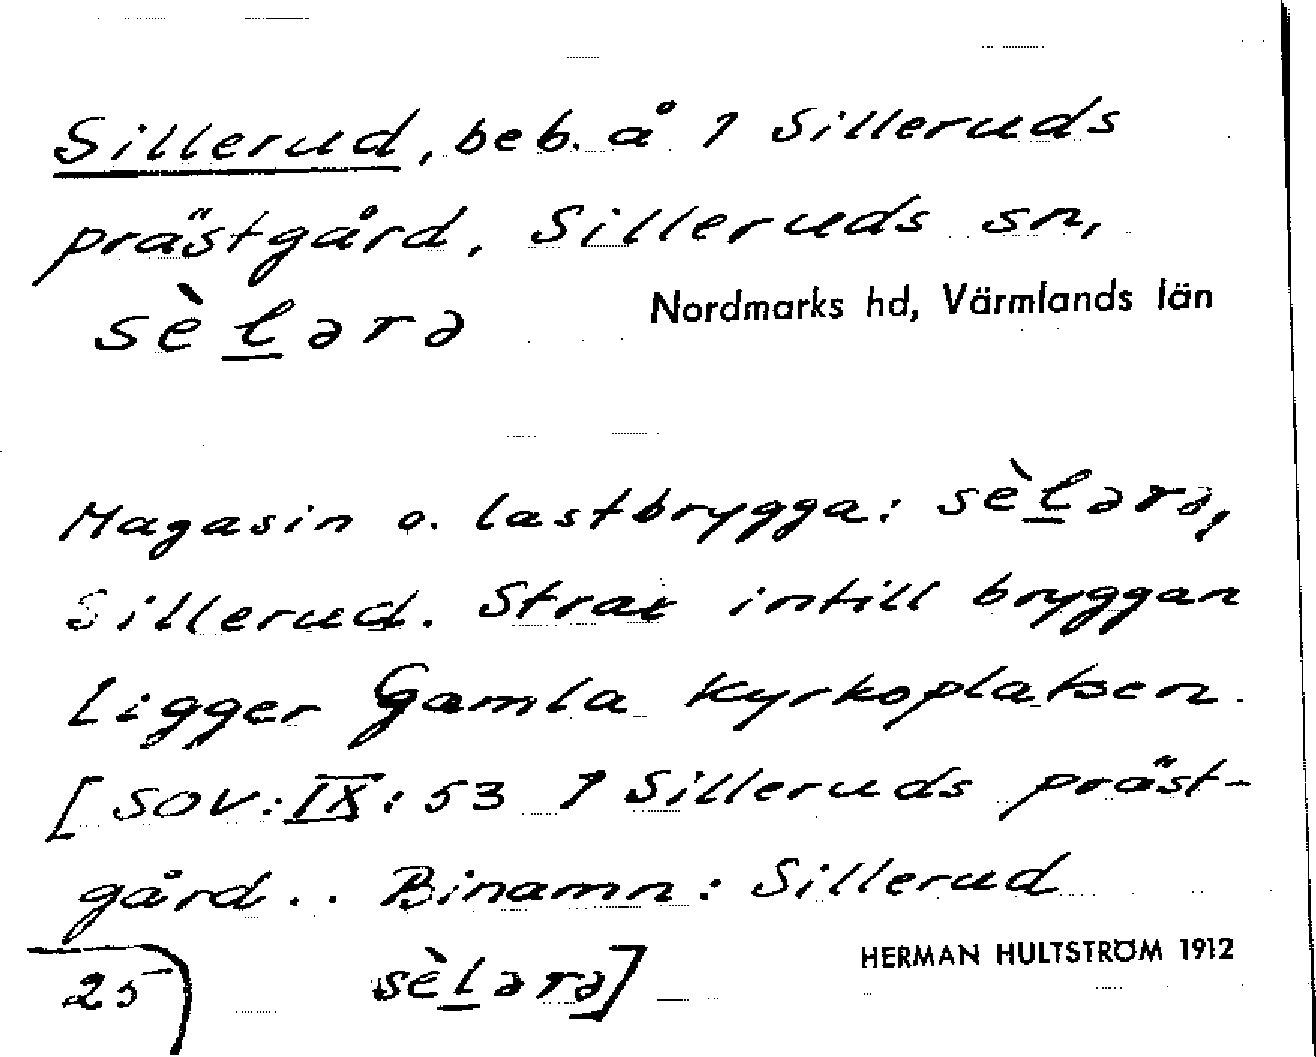 Sillerud, beb. å 1 Silleruds
prästgård. Silleruds sn,
sèl̲ərə Nordmarks hd, Värmlands län
Magasin o. lastbrygga: sèl̲ərə,
Sillerud. Strax intill bryggan
Ligger Gamla Kyrkoplatsen.
[SOV: IX: 53 1 Silleruds präst-
gård.. Binamn: Sillerud
25 sèl̲ərə] HERMAN HULTSTRÖM 1912